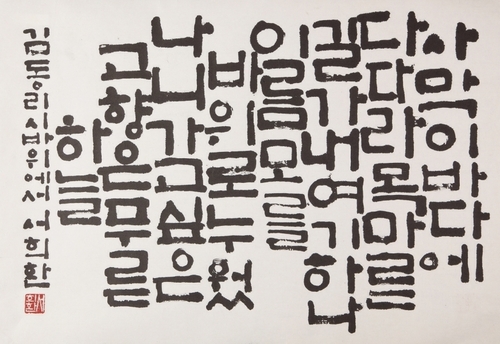 사막이바다에
다다라목마를
길가내여기하나
이름모를
바위로누웠
나니가고싶은
고향은푸른
하늘
김동리시바위에서 서희환